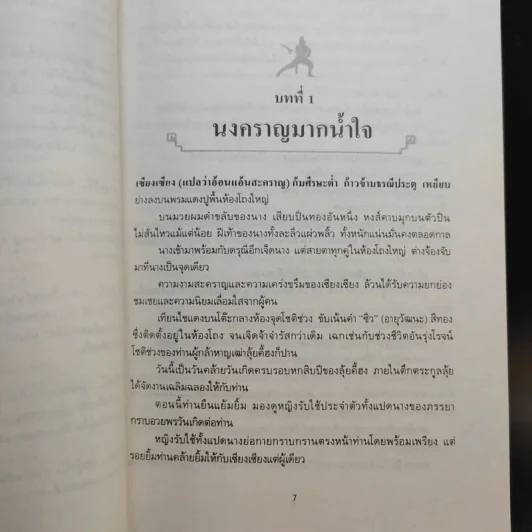 บทที่ 1
นงคราญมากน้ำใจ
เซียงเซียง (แปลว่าอ้อนแอ้นสะคราญ) ก้มศีรษะต่ำ ก้าวข้ามธรณีประตู เหยียบ
ย่างลงบนพรมแดงปูพื้นห้องโถงใหญ่
บนมวยผมดำขลับของนาง เสียบปิ่นทองอันหนึ่ง หงส์คาบมุกบนตัวปิ่น
ไม่สั่นไหวแม้แต่น้อย ฝีเท้าของนางทั้งละลิ่วแผ่วพลิ้ว ทั้งหนักแน่นมั่นคงตลอดกาล
นางเข้ามาพร้อมกับดรุณีอีกเจ็ดนาง แต่สายตาทุกคู่ในห้องโถงใหญ่ ต่างจ้องจับ
มาที่นางเป็นจุดเดียว
ความงามสะคราญและความเคร่งขรึมของเซียงเซียง ล้วนได้รับความยกย่อง
ชมเชยและความนิยมเลื่อมใสจากผู้คน
เทียนไขแดงบนโต๊ะกลางห้องจุดโชติช่วง ขับเน้นคำ "ซิ่ว" (อายุวัฒนะ) สีทอง
ซึ่งติดตั้งอยู่ในห้องโถง จนเจิดจ้าจำรัสกว่าเดิม เฉกเช่นกับช่วงชีวิตอันรุ่งโรจน์
โชติช่วงของท่านผู้กล้าหาญเฒ่าลุ้ยคี้ฮงก็ปาน
วันนี้เป็นวันคล้ายวันเกิดครบรอบหกสิบปีของลุ้ยคี้ฮง ภายในตึกตระกูลลุ้ย
ได้จัดงานเฉลิมฉลองให้กับท่าน
ตอนนี้ท่านยืนแย้มยิ้ม มองดูหญิงรับใช้ประจำตัวทั้งแปดนางของภรรยา
กราบอวยพรวันเกิดต่อท่าน
หญิงรับใช้ทั้งแปดนางย่อกายกราบกรานตรงหน้าท่านโดยพร้อมเพรียง แต่
รอยยิ้มท่านคล้ายยิ้มให้กับเซียงเซียงแต่ผู้เดียว
7